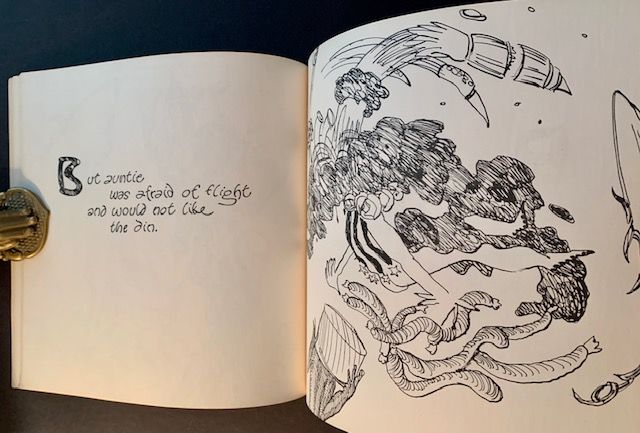 But auntie
was afraid of flight
and would not like
the din.